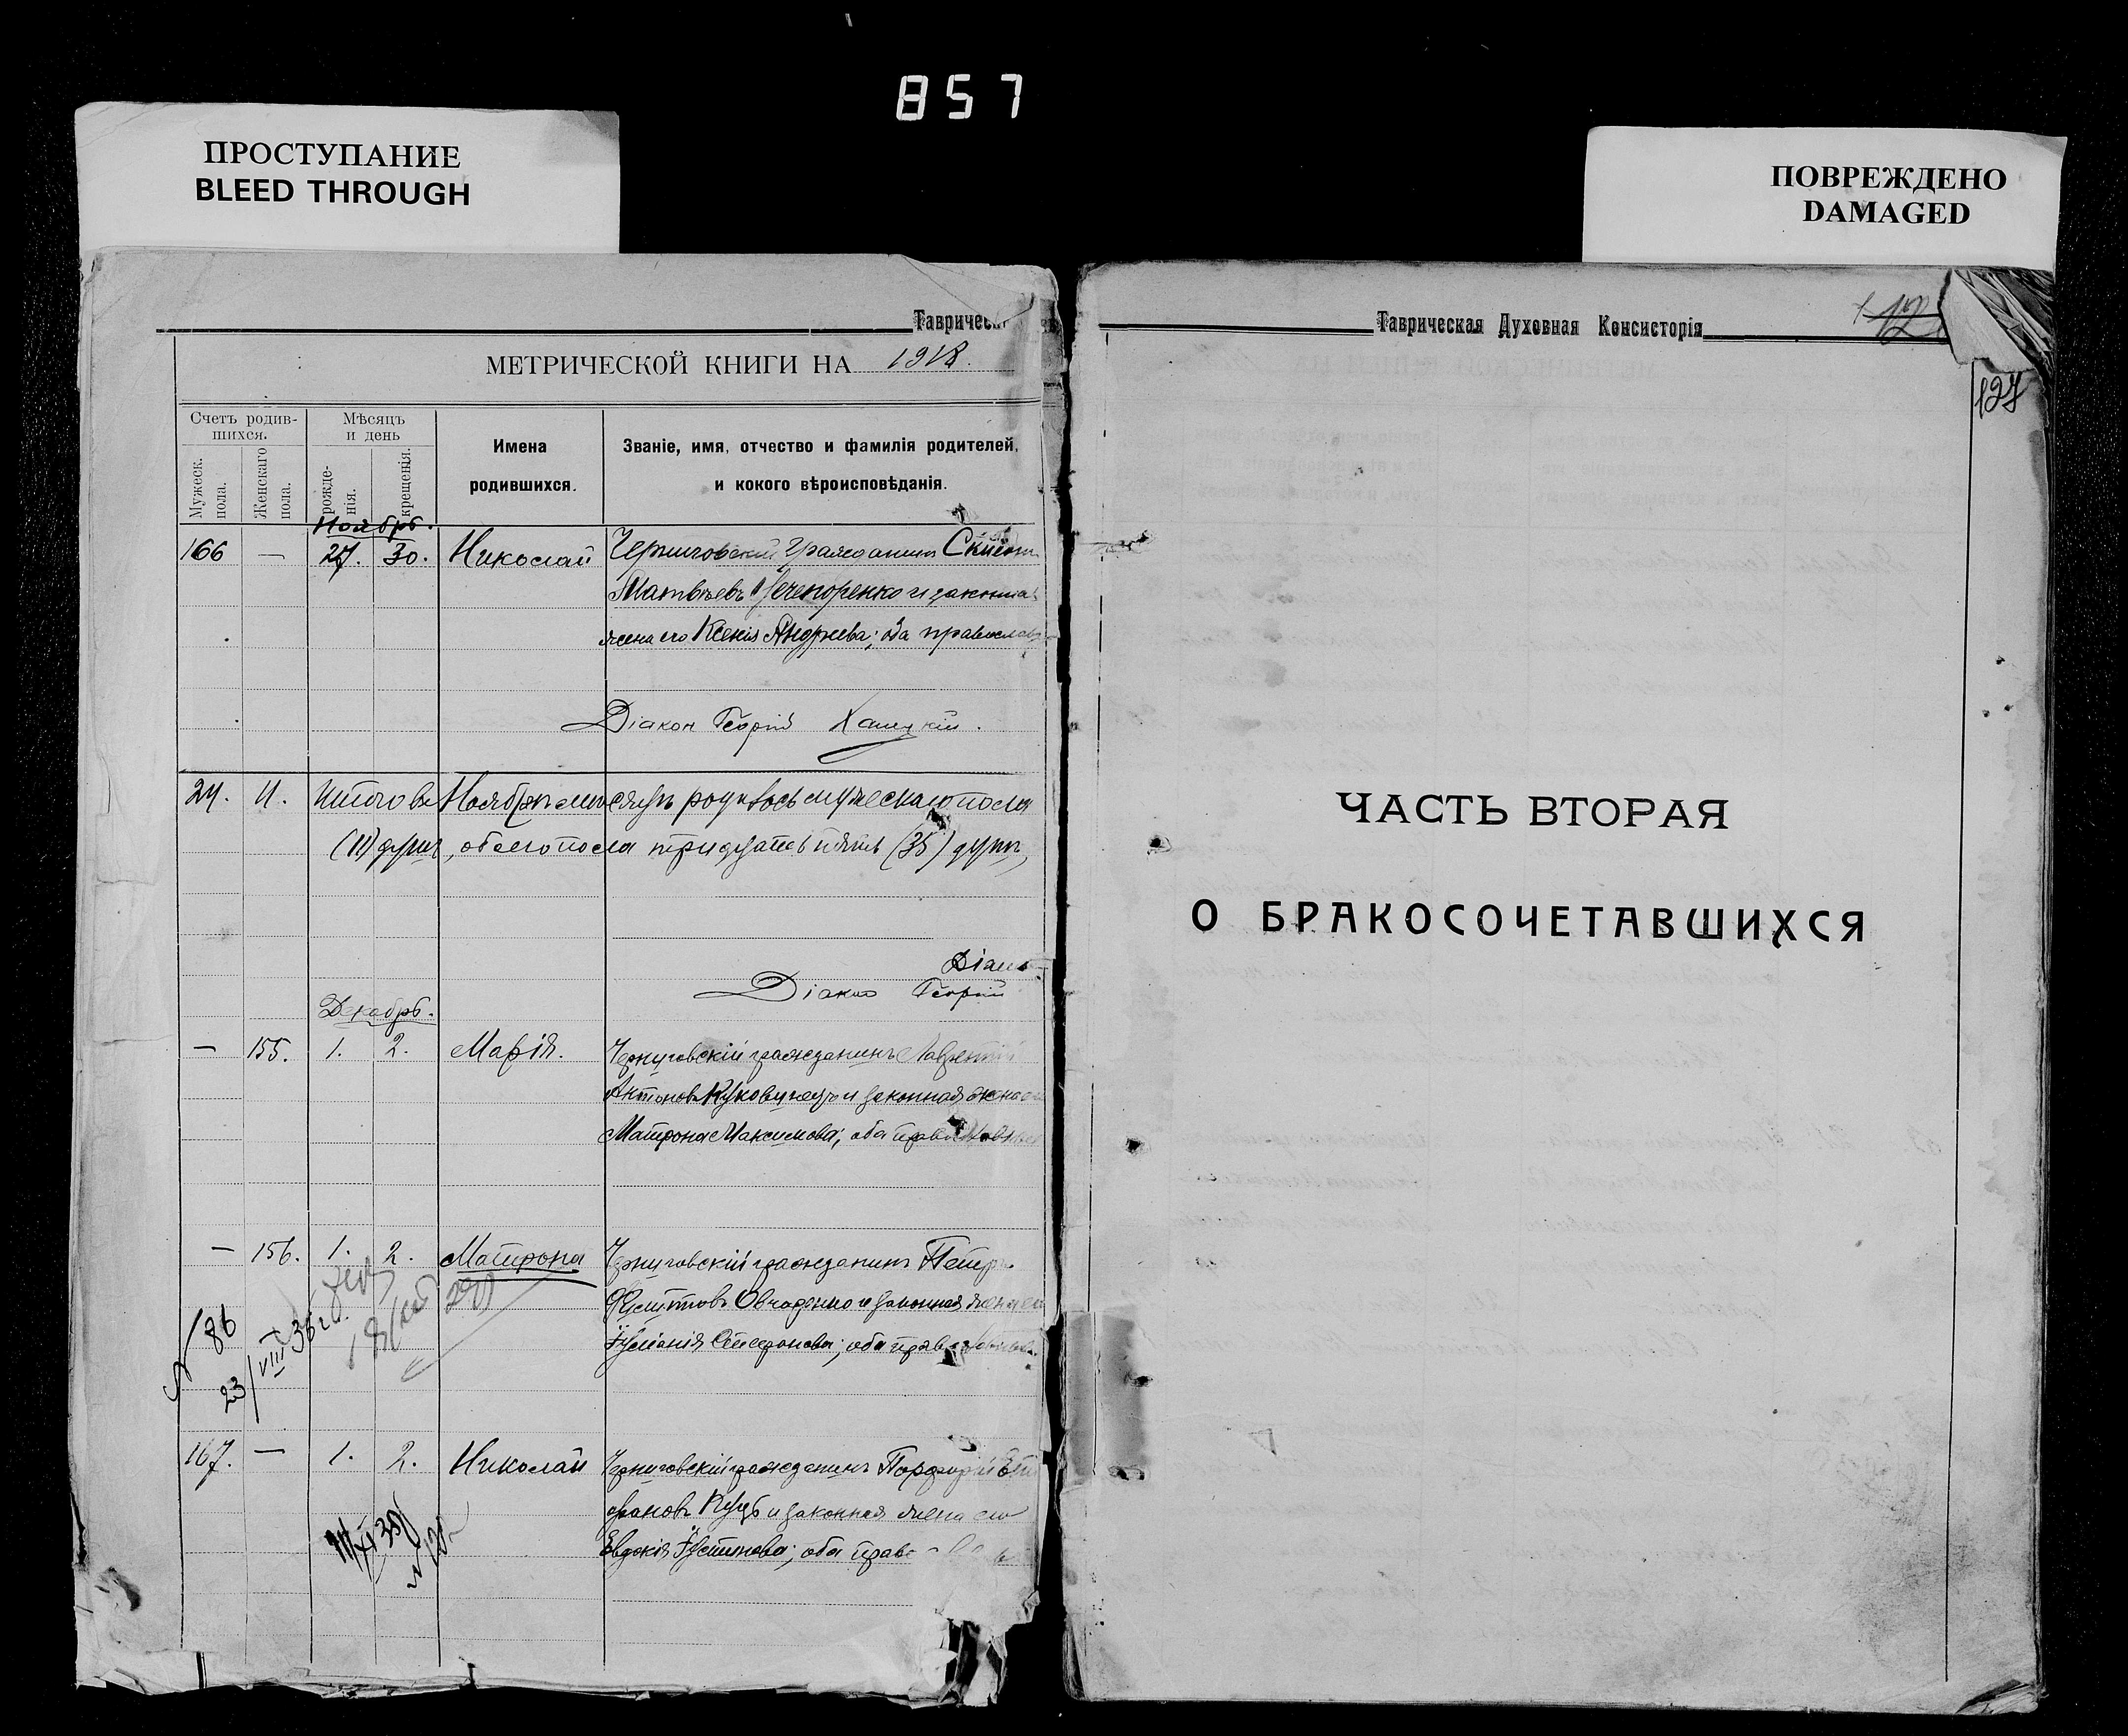 857
ПРОСТУПАНИЕ
BLEED THROUGH
ПОВРЕЖДЕНО
DAMAGED
Тавричес
МЕТРИЧЕСКОЙ КНИГИ НА 1918.
Счетъ родив-
шихся.
Мужеск.
пола.
Женскаго
пола.
Мѣсяцъ
и день
рожде-
нія.
крещенія.
Имена
родившихся.
Званіе, имя, отчество и фамилія родителей,
и кокого вѣроисповѣданія.
Ноябрь.
166 — 27. 30. Николай Черниговскій гражданинъ
Матвѣевъ Нечепоренко и законная
жена его Ксенія Андреева; оба православ
Діакон Георгій
24. 11. Итого въ Ноябрѣ мѣсяцѣ родилось мужескаго пола
(11) душъ, обоего пола тридцать пять (35) душъ,
Діако
Діакон Георгій
Декабрь.
— 155. 1. 2. Марія. Черниговскій гражданинъ Лаврентій
Антоновъ и законная жена его
Матрона Максимова; оба православные
— 156. 1. 2. Матрона Черниговскій гражданинъ Петръ
и законная жена его
Стефанова; оба православные.
№ 86
23/VIII 36 г.
167. — 1. 2. Николай Черниговскій гражданинъ Порфирій Сте
фановъ Куцъ и законная жена его
Евдокія Іустинова; оба праве
Таврическая Духовная Консисторія
127
ЧАСТЬ ВТОРАЯ
О БРАКОСОЧЕТАВШИХСЯ